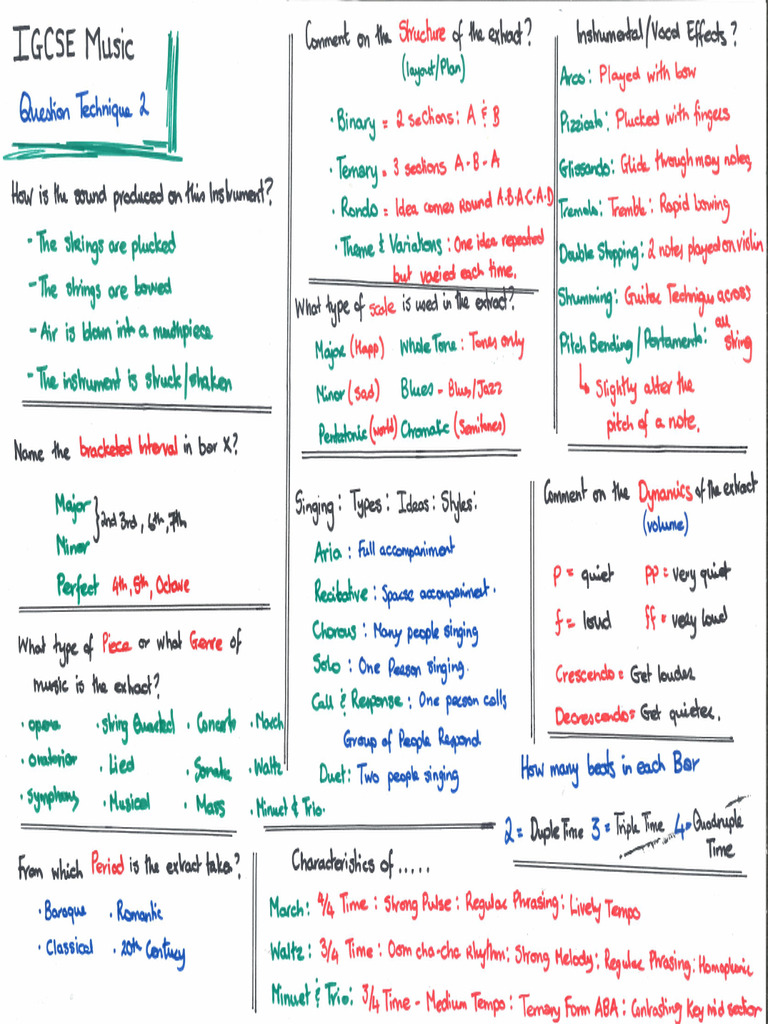 IGCSE Music
Question Technique 2
How is the sound produced on this instrument?
- The strings are plucked
- The strings are bowed
- Air is blown into a mouthpiece
- The instrument is struck/shaken
Name the bracketed interval in bar X?
Major
Minor
} 2nd 3rd, 6th, 7th
Perfect 4th, 5th, Octave
What type of Piece or what Genre of
music is the extract?
· opera · String Quartet · Concerto · March
· oratorior · Lied · Sonata · Waltz
· Symphony · Musical · Mass · Minuet & Trio
From which Period is the extract taken?
· Baroque · Romantic
· Classical · 20th Century
Comment on the Structure of the extract?
(layout/Plan)
· Binary = 2 sections: A & B
· Ternary = 3 sections A-B-A
· Rondo = Idea comes Round A-B-A-C-A-D
· Theme & Variations: One idea repeated
but varied each time.
What type of scale is used in the extract?
Major (Happ) Whole Tone: Tones only
Minor (sad) Blues - Blues/Jazz
Pentatonic (world) Chromatic (Semitones)
Singing: Types: Ideas: Styles:
Aria: Full accompaniment
Recitative: Sparse accompaniment.
Chorous: Many people singing
Solo: One Person singing.
Call & Response: One person calls
Group of People Respond
Duet: Two people singing
Instrumental/Vocal Effects?
Arco: Played with bow
Pizzicato: Plucked with fingers
Glissando: Glide through many notes
Tremolo: Tremble: Rapid bowing
Double Stopping: 2 notes played on violin
Strumming: Guitar Technique across
all
string
Pitch Bending/Portamento:
↳ Slightly alter the
pitch of a note.
Comment on the Dynamics of the extract
(volume)
p = quiet pp = very quiet
f = loud ff = very loud
Crescendo = Get louder
Decrescendo = Get quieter.
How many beats in each Bar
2 = Duple Time 3 = Triple Time 4 = Quadruple
Time
Characteristics of .....
March: 4/4 Time: Strong Pulse: Regular Phrasing: Lively Tempo
Waltz: 3/4 Time: Oom cha-cha Rhythm: Strong Melody: Regular Phrasing: Homophonic
Minuet & Trio: 3/4 Time - Medium Tempo: Ternary Form ABA: Contrasting Key mid section